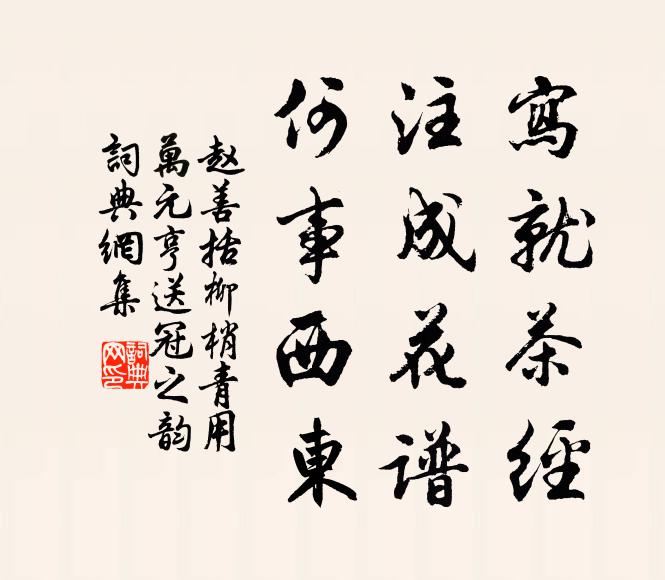 寫就茶經
注成花谱
何事西東
赵善括柳梢青用
萬元亨送冠之韵
詞典網集
詞典网印